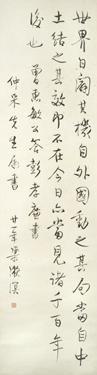 世界日闢其機自外國動之其局當自中
土結之其效即不在今日亦當見諸千百年
後也 曾惠敏公答彭孝廉書
仲采先生屬書
廿一年 梁漱溟